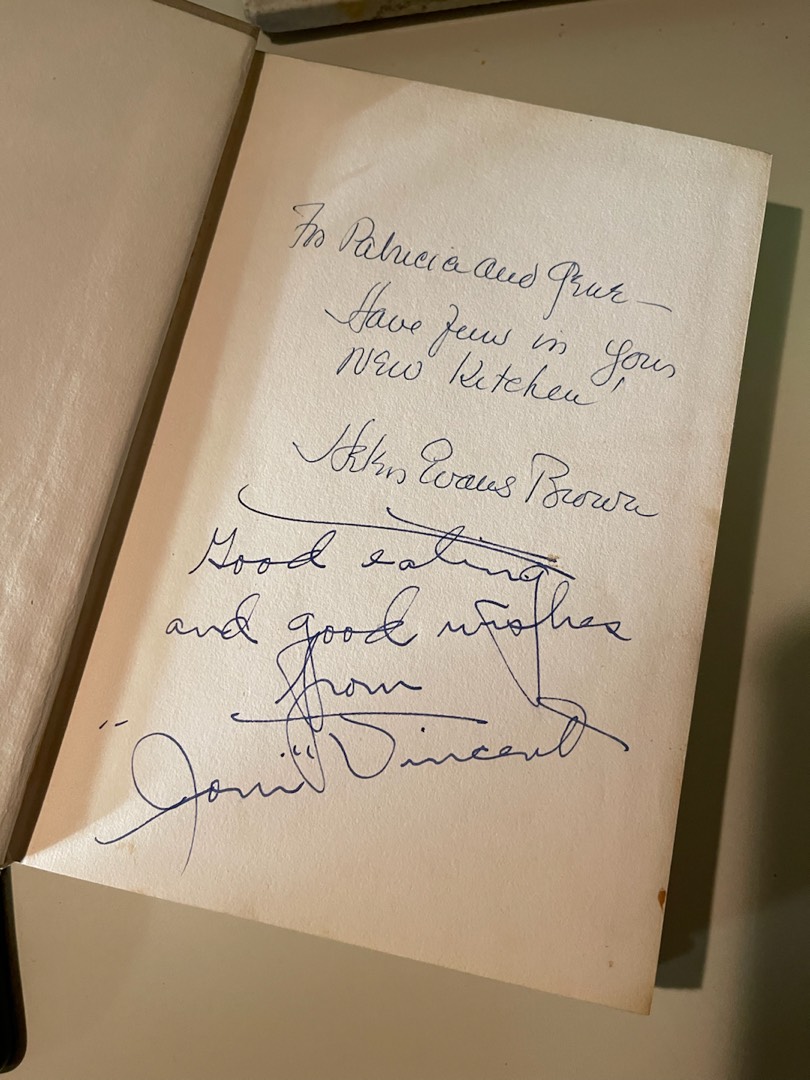 For Patricia and Gene —
Have fun in your
NEW Kitchen!
Helen Evans Brown
Good eating
and good wishes
from
"Joni" Vincent